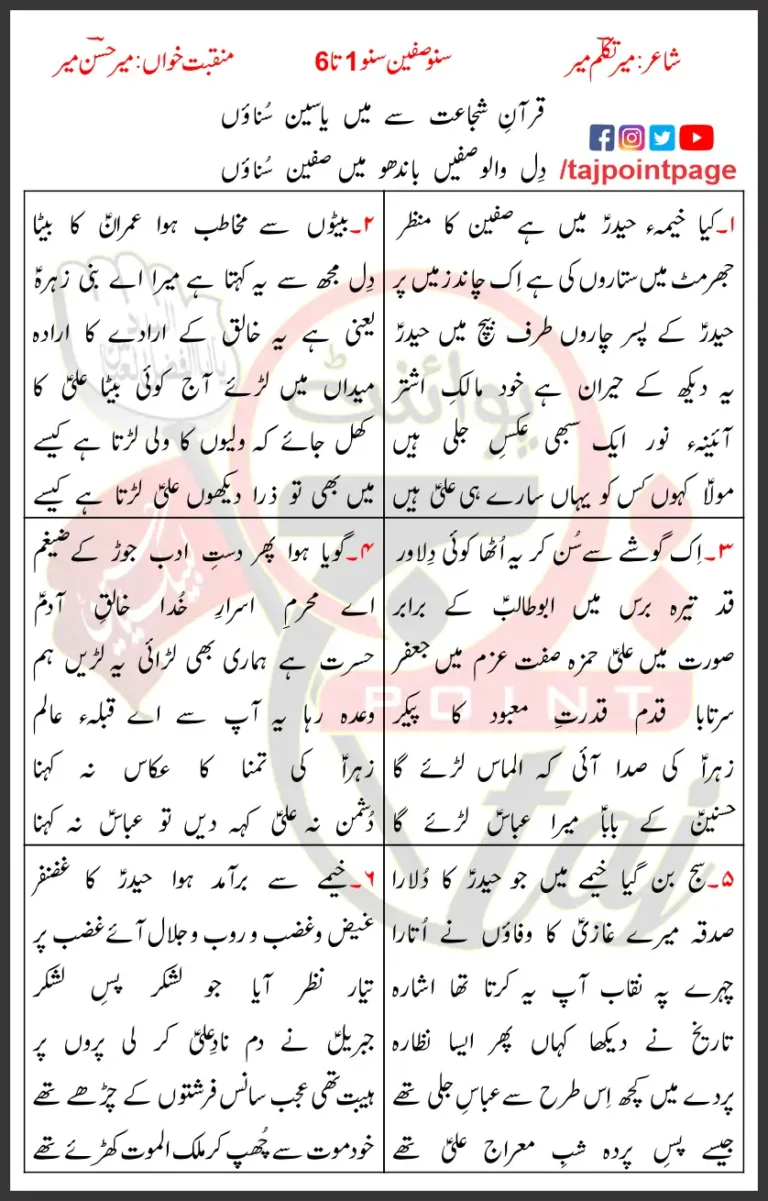 شاعر: میر تکلّم میر
سنو صفین سنو 1 تا 6
منقبت خواں: میر حسن میر
قرآنِ شجاعت سے میں یاسین سُناؤں
دِل والو صفیں باندھو میں صفین سُناؤں
/tajpointpage
۱۔کیا خیمہء حیدرؑ میں ہے صفین کا منظر
جھرمٹ میں ستاروں کی ہے اِک چاند زمیں پر
حیدرؑ کے پسر چاروں طرف بیچ میں حیدرؑ
یہ دیکھ کے حیران ہے خود مالکِ اشتر
آئینہء نور ایک سبھی عکسِ جلی ہیں
مولاؑ کہوں کس کو یہاں سارے ہی علیؑ ہیں
۲۔بیٹوں سے مخاطب ہوا عمرانؑ کا بیٹا
دِل مجھ سے یہ کہتا ہے میرا اے بنی زہرہؑ
یعنی ہے یہ خالق کے ارادے کا ارادہ
میداں میں لڑئے آج کوئی بیٹا علیؑ کا
کھل جائے کہ ولیوں کا ولی لڑتا ہے کیسے
میں بھی تو ذرا دیکھوں علیؑ لڑتا ہے کیسے
۳۔اِک گوشے سے سُن کر یہ اُٹھا کوئی دِلاور
قد تیرہ برس میں ابوطالبؑ کے برابر
صورت میں علیؑ حمزہ صفت عزم میں جعفر
سرتابا قدم قدرتِ معبود کا پیکر
زہراؑ کی صدا آئی کہ الماس لڑئے گا
حسنینؑ کے باباؑ میرا عباسؑ لڑئے گا
۴۔گویا ہوا پھر دستِ ادب جوڑ کے ضیغم
اے محرمِ اسرارِ خُدا خالقِ آدمؑ
حسرت ہے ہماری بھی لڑائی یہ لڑیں ہم
وعدہ رہا یہ آپ سے اے قبلہء عالم
زہراؑ کی تمنا کا عکاس نہ کہنا
دُشمن نہ علیؑ کہہ دیں تو عباسؑ نہ کہنا
۵۔سج بن گیا خیمے میں جو حیدرؑ کا دُلارا
صدقہ میرے غازیؑ کا وفاؤں نے اُتارا
چہرے پہ نقاب آپ یہ کرتا تھا اشارہ
تاریخ نے دیکھا کہاں پھر ایسا نظارہ
پردے میں کچھ اِس طرح سے عباسِ جلی تھے
جیسے پسِ پردہ شبِ معراج علیؑ تھے
۶۔خیمے سے برآمد ہوا حیدرؑ کا غضنفر
غیض و غضب و روب و جلال آئے غضب پر
تیار نظر آیا جو لشکر پسِ لشکر
جبریلؑ نے دم نادِعلیؑ کر لی پروں پر
ہیبت تھی عجب سانس فرشتوں کے چڑھے تھے
خود موت سے چُھپ کر ملک الموت کھڑئے تھے
پوائنٹ
POINT
taj